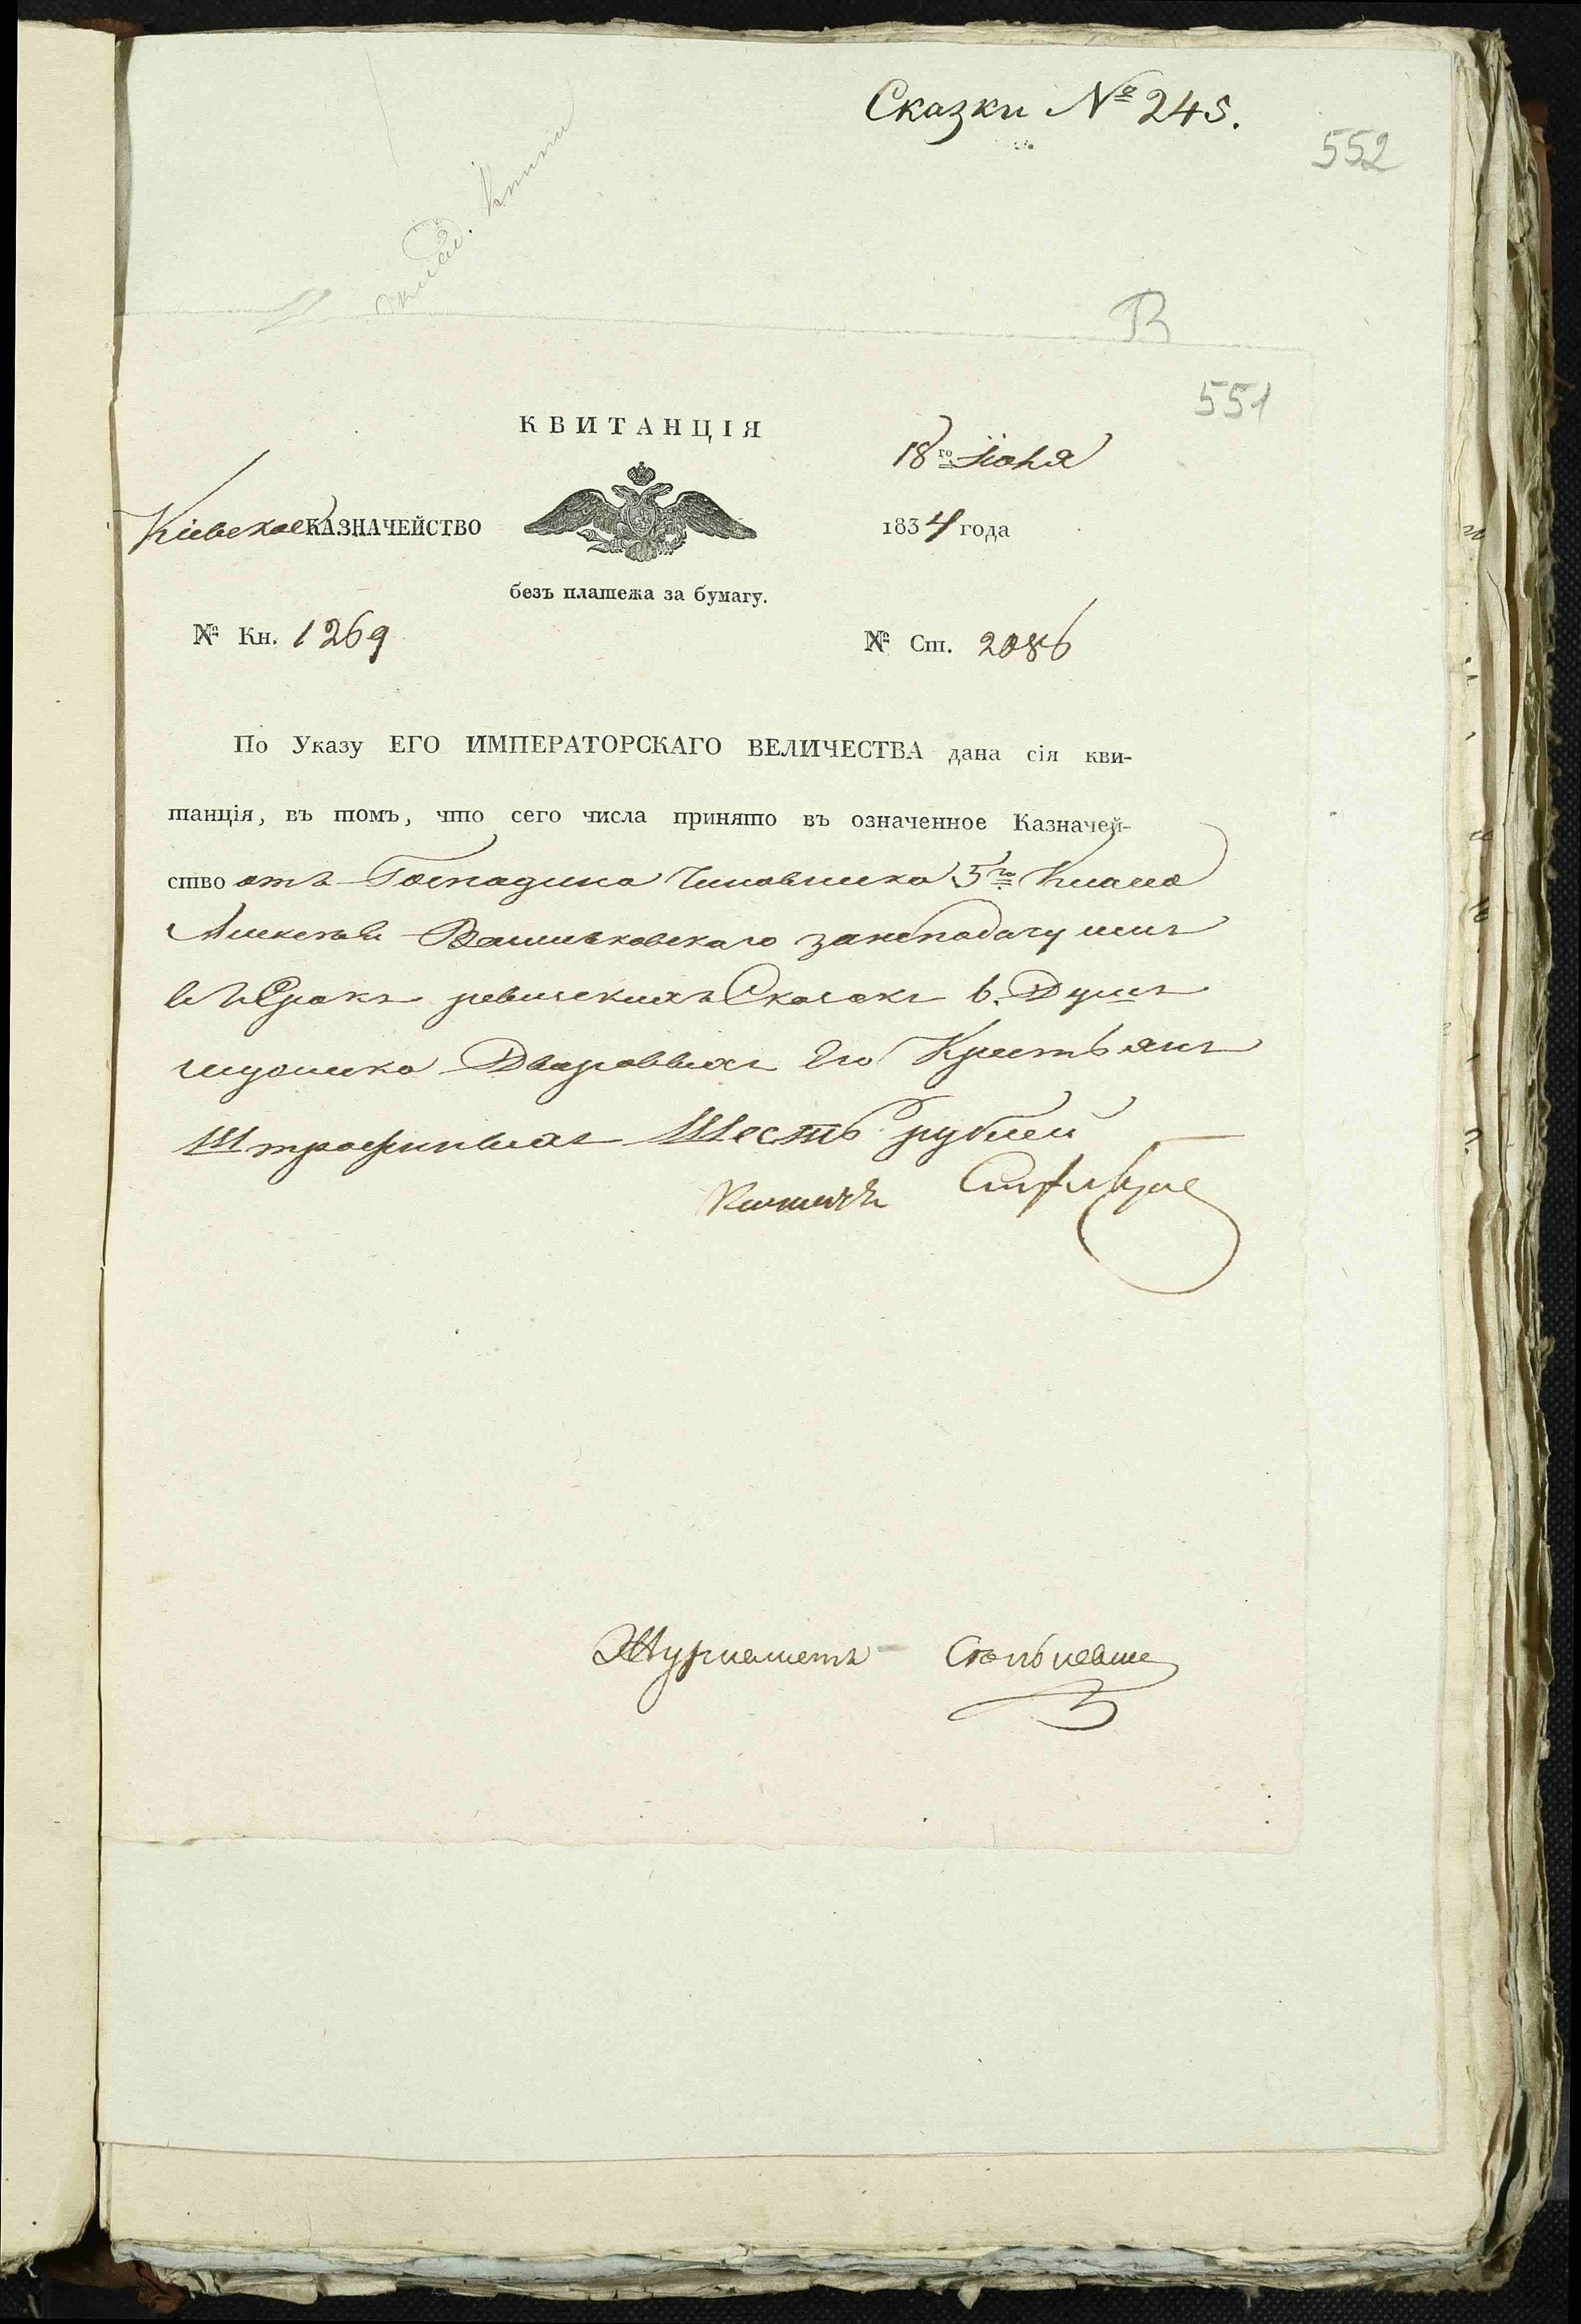 Сказки № 245.
552
551
КВИТАНЦІЯ
18го Іюня
Кіевское КАЗНАЧЕЙСТВО
1834 года
безъ платежа за бумагу.
№ Кн. 1269
№ Ст. 2086
По Указу ЕГО ИМПЕРАТОРСКАГО ВЕЛИЧЕСТВА дана сія кви-
танція, въ томъ, что сего числа принято въ означенное Казначей-
ство отъ Господина Чиновника 5го Класа
занеподачу имъ
въ Срокъ ревискихъ Сказокъ 6. Душъ
Дворовыхъ Его Крестьянъ
Штрафныхъ Шесть рублей
Журналистъ